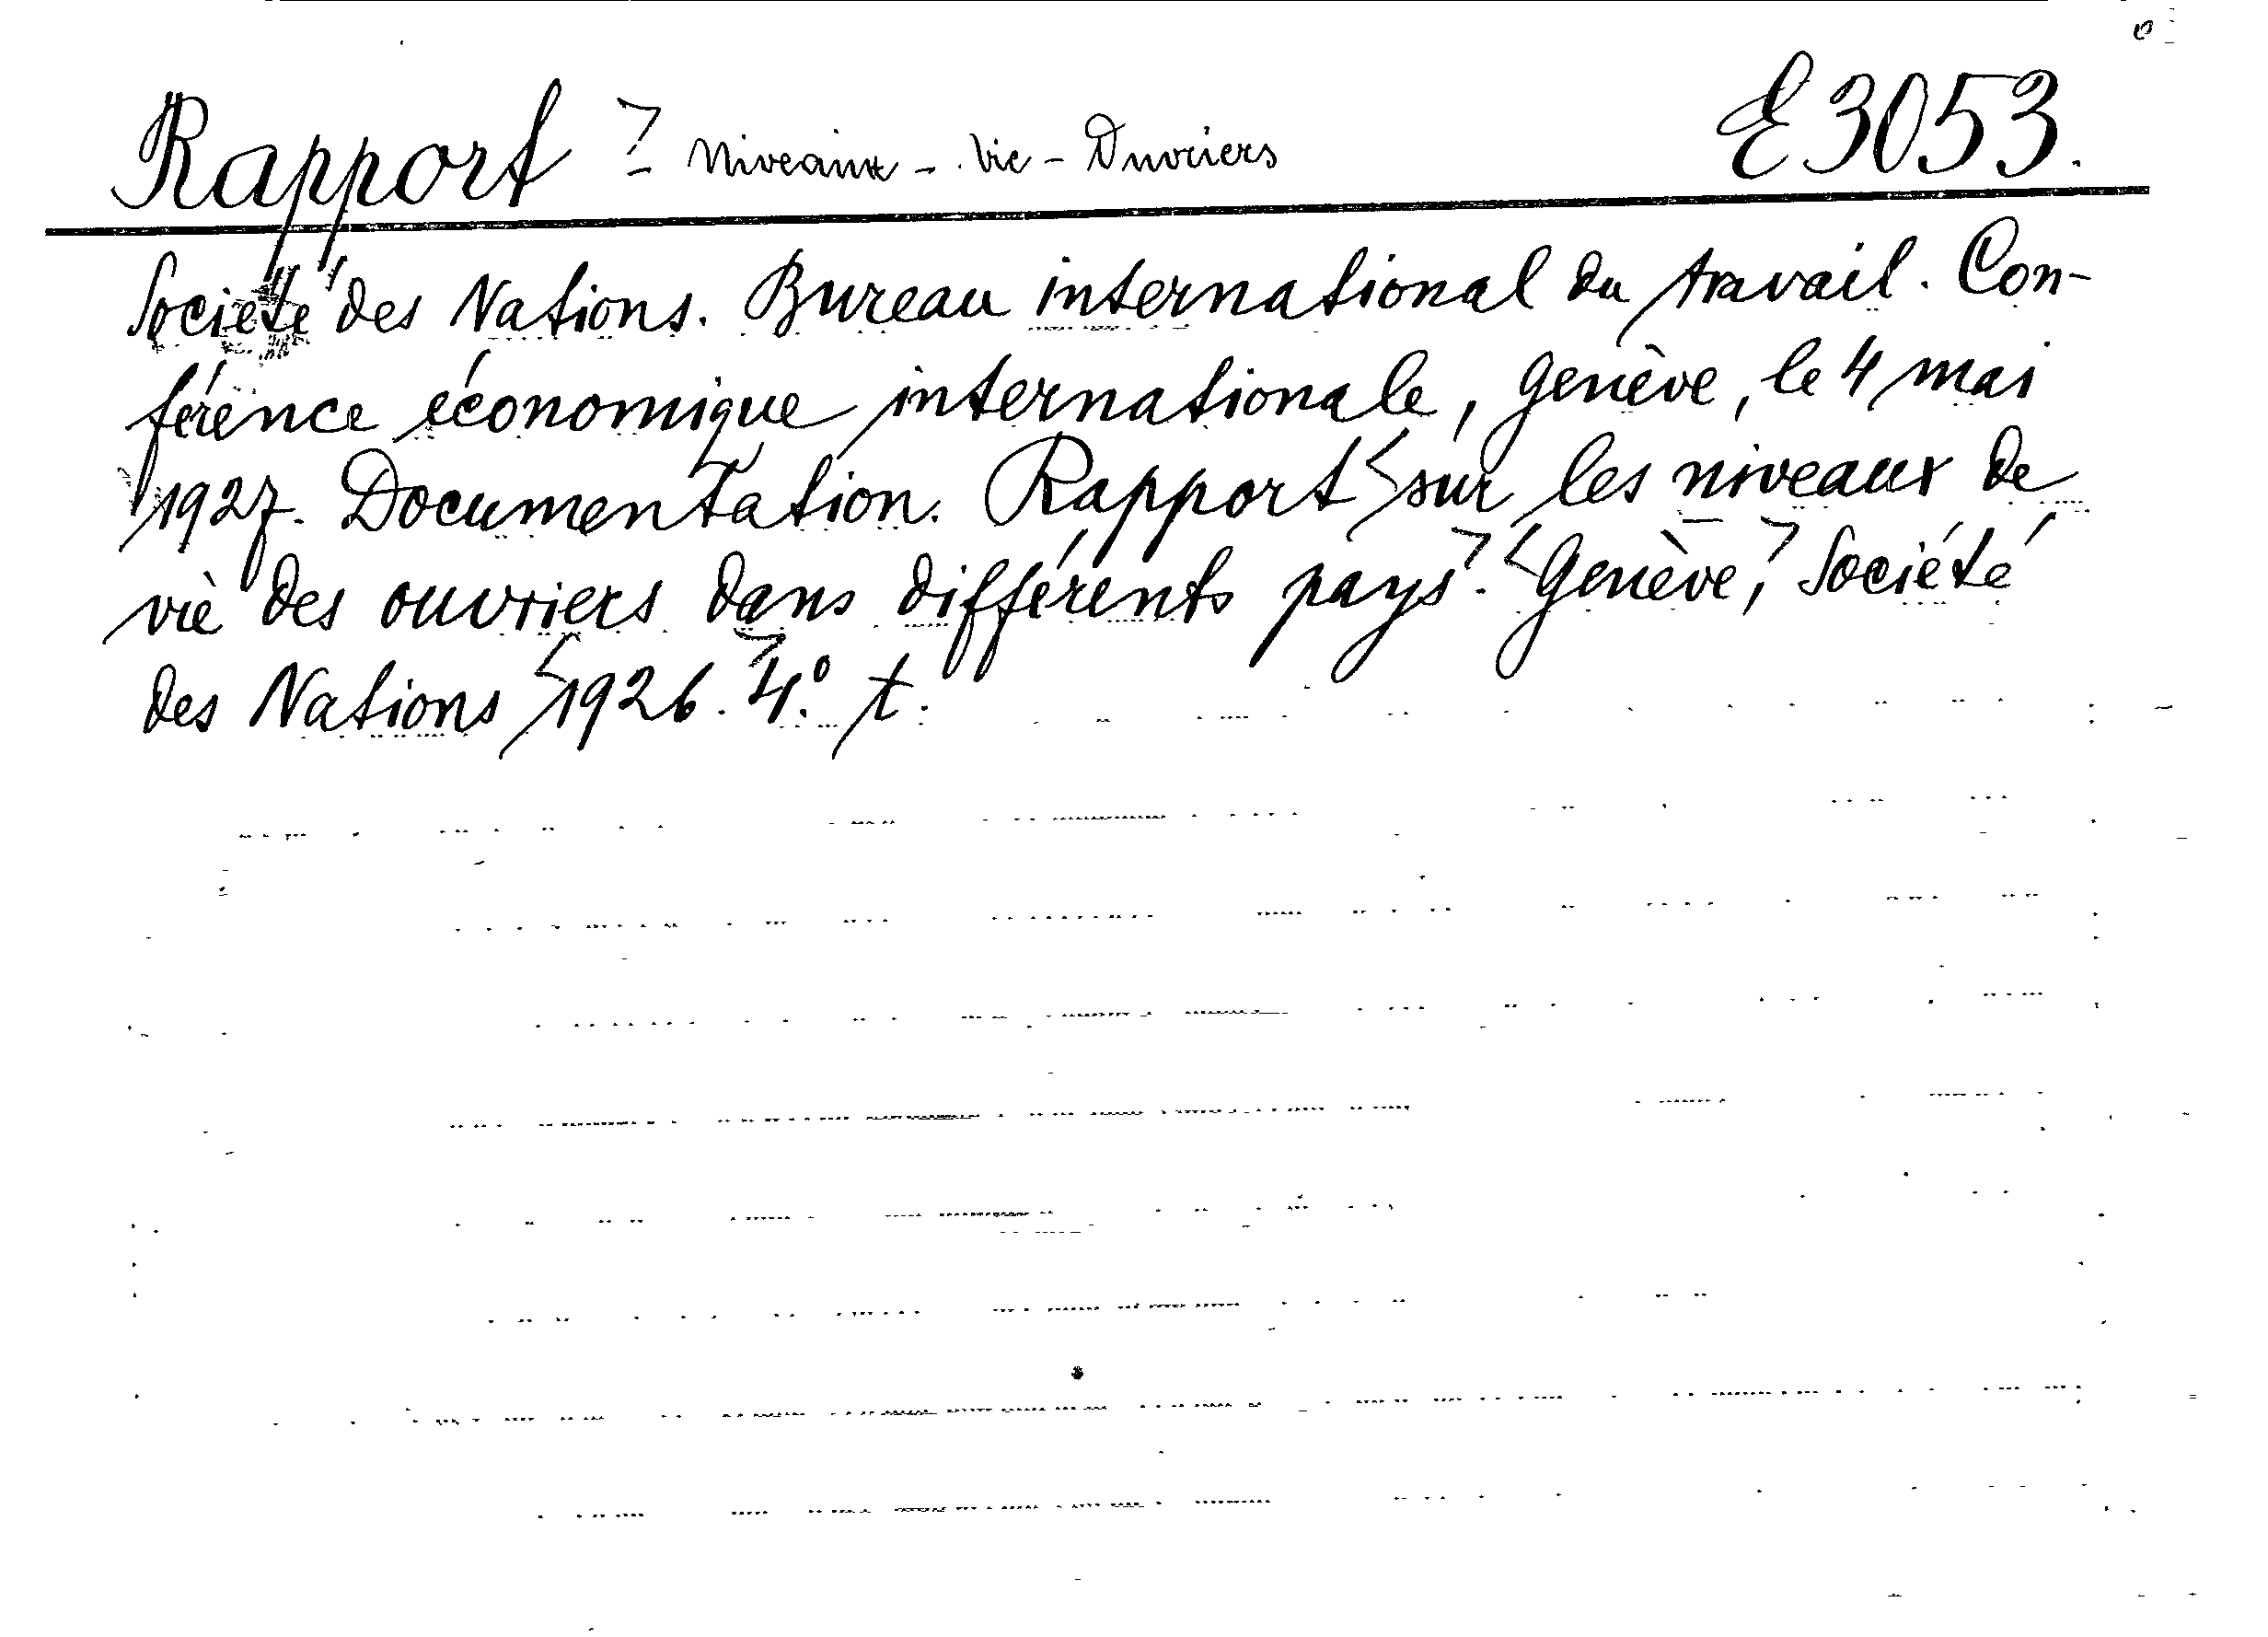 Rapport - Niveaux - Vie - Ouvriers E 3053.
Société des Nations. Bureau international du travail. Con-
férence économique internationale, Genève, le 4 mai
1927. Documentation. Rapport sur les niveaux de
vie des ouvriers dans différents pays. Genève, Société
des Nations 1926. 4.° t.